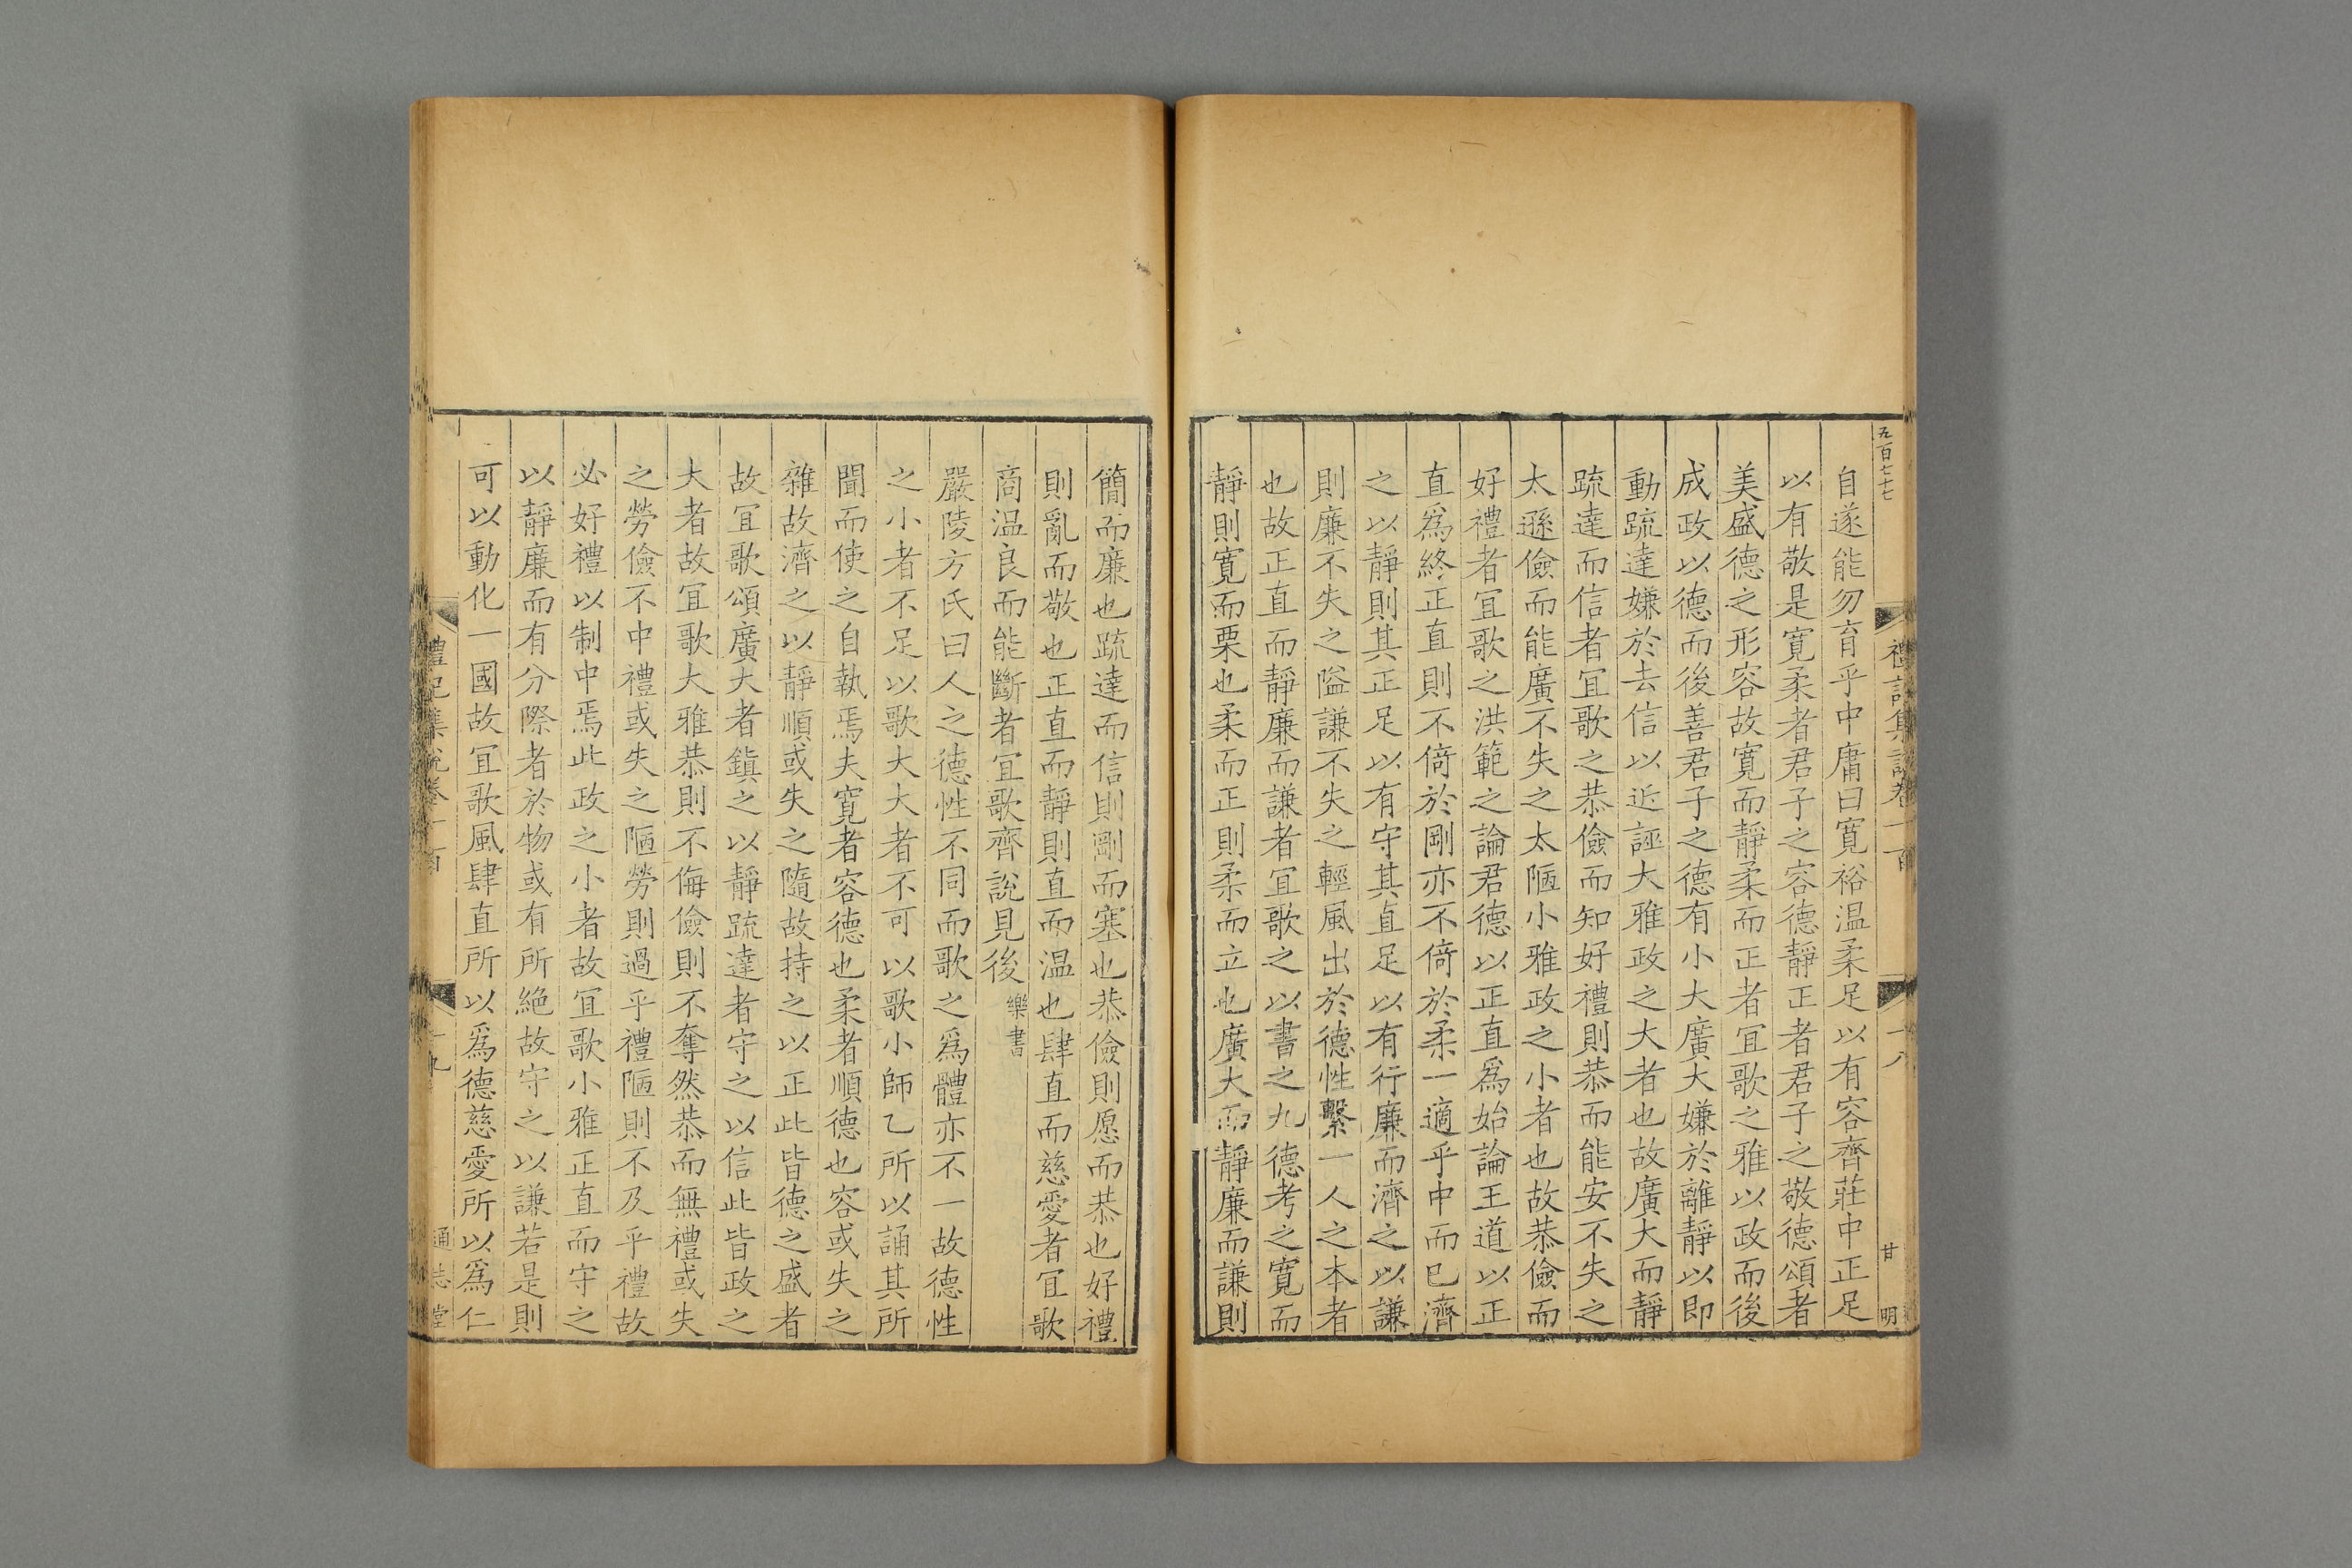 五百七十七
禮記集說卷一百
十八
甘
明
自遂能勿育乎中庸曰寛裕温柔足以有容齊莊中正足
以有敬是寛柔者君子之容德靜正者君子之敬德頌者
美盛德之形容故寛而靜柔而正者宜歌之雅以政而後
成政以德而後善君子之德有小大廣大嫌於離靜以即
動疏達嫌於去信以近誣大雅政之大者也故廣大而靜
疏達而信者宜歌之恭儉而知好禮則恭而能安不失之
太遜儉而能廣不失之太陋小雅政之小者也故恭儉而
好禮者宜歌之洪範之論君德以正直爲始論王道以正
直爲終正直則不倚於剛亦不倚於柔一適乎中而已濟
之以靜則其正足以有守其直足以有行廉而濟之以謙
則廉不失之隘謙不失之輕風出於德性繫一人之本者
也故正直而靜廉而謙者宜歌之以書之九德考之寛而
靜則寛而栗也柔而正則柔而立也廣大而靜廉而謙則
簡而廉也疏達而信則剛而塞也恭儉則愿而恭也好禮
則亂而敬也正直而靜則直而温也肆直而慈愛者宜歌
商温良而能斷者宜歌齊說見後樂書
嚴陵方氏曰人之德性不同而歌之爲體亦不一故德性
之小者不足以歌大大者不可以歌小師乙所以誦其所
聞而使之自執焉夫寛者容德也柔者順德也容或失之
雜故濟之以靜順或失之隨故持之以正此皆德之盛者
故宜歌頌廣大者鎮之以靜疏達者守之以信此皆政之
大者故宜歌大雅恭則不侮儉則不奪然恭而無禮或失
之勞儉不中禮或失之陋勞則過乎禮陋則不及乎禮故
必好禮以制中焉此政之小者故宜歌小雅正直而守之
以靜廉而有分際者於物或有所絶故守之以謙若是則
可以動化一國故宜歌風肆直所以爲德慈愛所以爲仁
禮記集說卷一百
十九
通志堂